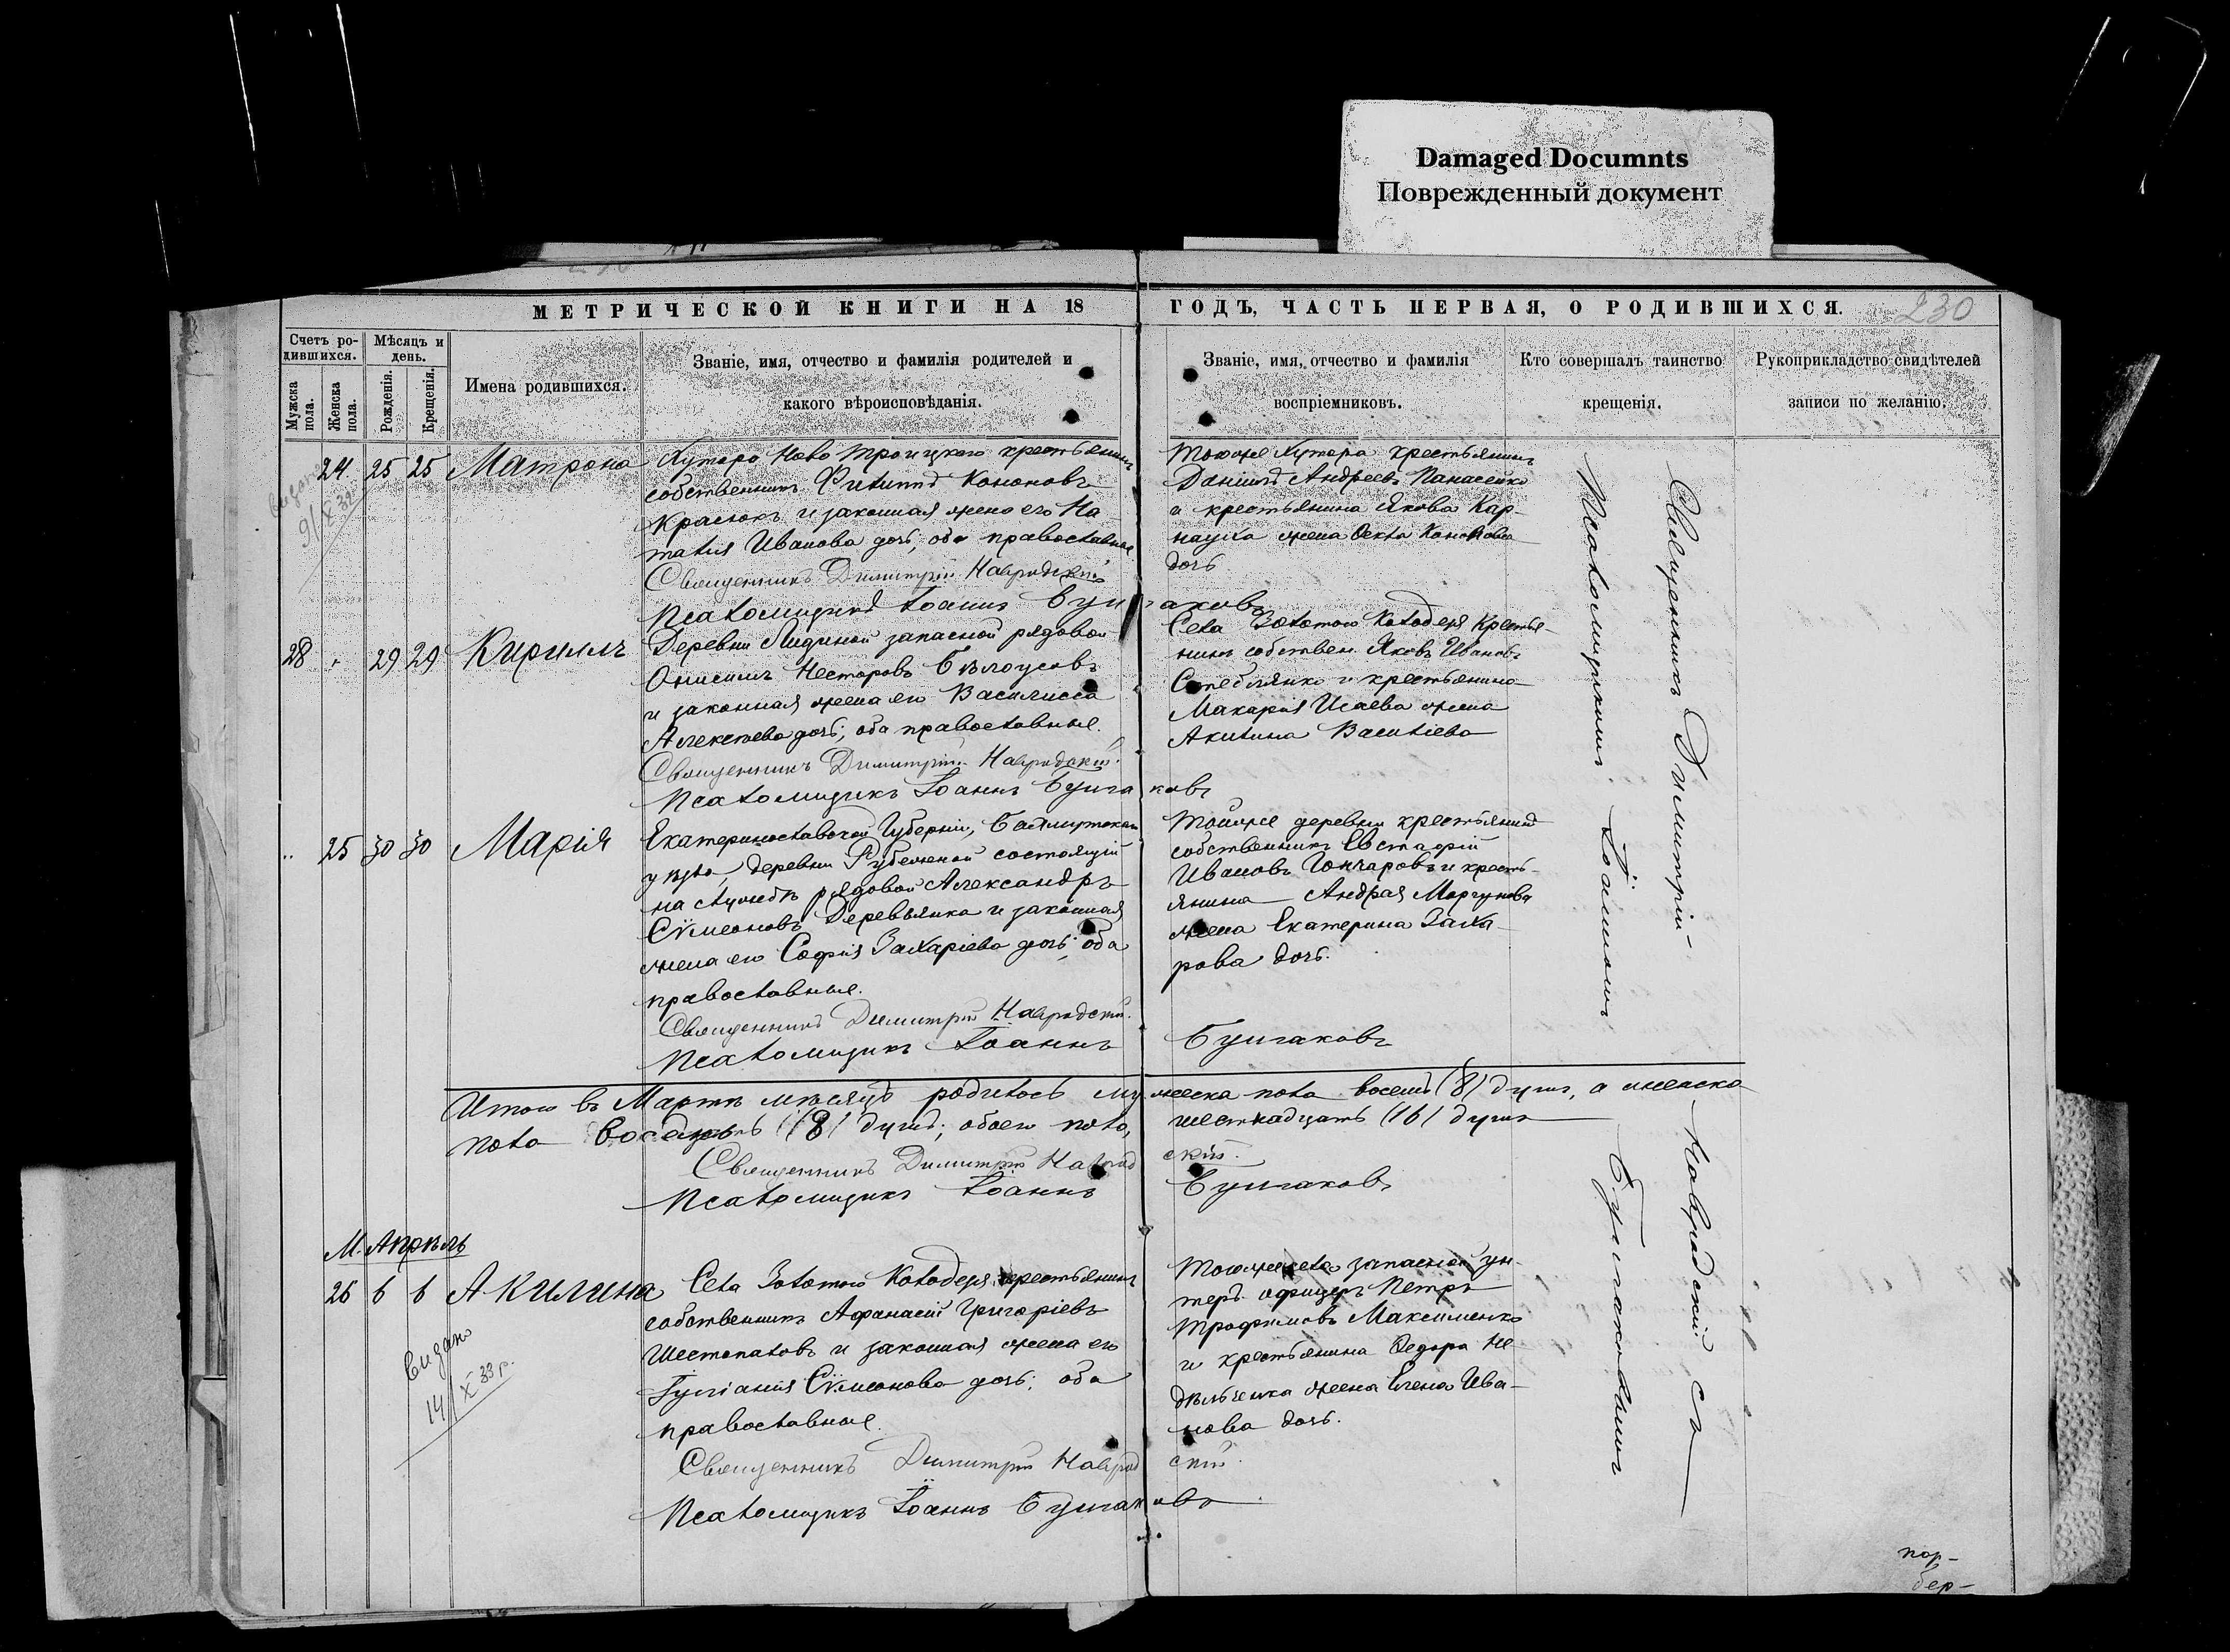 Damaged Documnts
Поврежденный документ
МЕТРИЧЕСКОЙ КНИГИ НА 18 ГОДЪ, ЧАСТЬ ПЕРВАЯ, О РОДИВШИХСЯ.
230
Счетъ ро-
дившихся.
Мѣсяцъ и
день.
Мужска
пола.
Женска
пола.
Рожденія.
Крещенія.
Имена родившихся.
Званіе, имя, отчество и фамилія родителей и
какого вѣроисповѣданія.
Званіе, имя, отчество и фамилія
воспріемниковъ.
Кто совершалъ таинство
крещенія.
Рукоприкладство свидѣтелей
записи по желанію.
24 25 25 Матрона
Хутора Ново-Троицкаго крестьянинъ
собственникъ Филиппъ Кононовъ
Краснокъ и законная жена его На
талія Иванова дочь, оба православные
Священникъ Димитрій Навродскій
Псаломщикъ Іоаннъ Булгаковъ
Тогоже Хутора крестьянинъ
Даніилъ Андреевъ Панасейко
и крестьянина Якова Кар-
науха жена Ѳекла Кононова
дочь
28 29 29 Кириллъ
Деревни Лидиной запасной рядовой
Онисимъ Несторовъ Бѣлоусовъ
и законная жена его Василисса
Алексѣева дочь, оба православные.
Священникъ Димитрій Навродскій.
Псаломщикъ Іоаннъ Булгаковъ
Села Золотого Колодезя Крестья-
нинъ собствен. Яковъ Ивановъ
Стеблянко и крестьянина
Макарія Исаева жена
Акилина Василіева
25 30 30 Марія
Екатеринославской Губерніи, Бахмутскаго
уѣзда, деревни Рубежной состоящій
на службѣ рядовой Александръ
Сѵмеоновъ Деревянка и законная
жена его Софія Захаріева дочь; оба
православные.
Священникъ Димитрій Навродскій.
Псаломщикъ Іоаннъ Булгаковъ
Тойже деревни крестьянинъ
собственникъ Евстафій
Ивановъ Гончаровъ и кресть-
янина Андрея Моргунова
жена Екатерина Заха-
рова дочь.
Итого въ Мартѣ мѣсяцѣ родилось мужеска пола восемь (8) душъ, а женска
пола восемь (8) душъ; обоего пола, шестнадцать (16) душъ
Священникъ Димитрій Навродскій.
Псаломщикъ Іоаннъ Булгаковъ
М. Апрѣль
26 6 6 Акилина
Села Золотого Колодезя крестьянинъ
собственникъ Афанасій Григоріевъ
Шестопаловъ и законная жена его
Гуліанія Сѵмеонова дочь; оба
православные.
Священникъ Димитрій Навродскій.
Псаломщикъ Іоаннъ Булгаковъ
Тогоже села запасной ун-
теръ офицеръ Петръ
Трофимовъ Максименко
и крестьянина Ѳедора Не-
дѣльченка жена Елена Ива-
нова дочь.
Священникъ Димитрій Навродскій съ
Псаломщикомъ Іоанномъ Булгаковымъ
Видано
14/X 33 р.